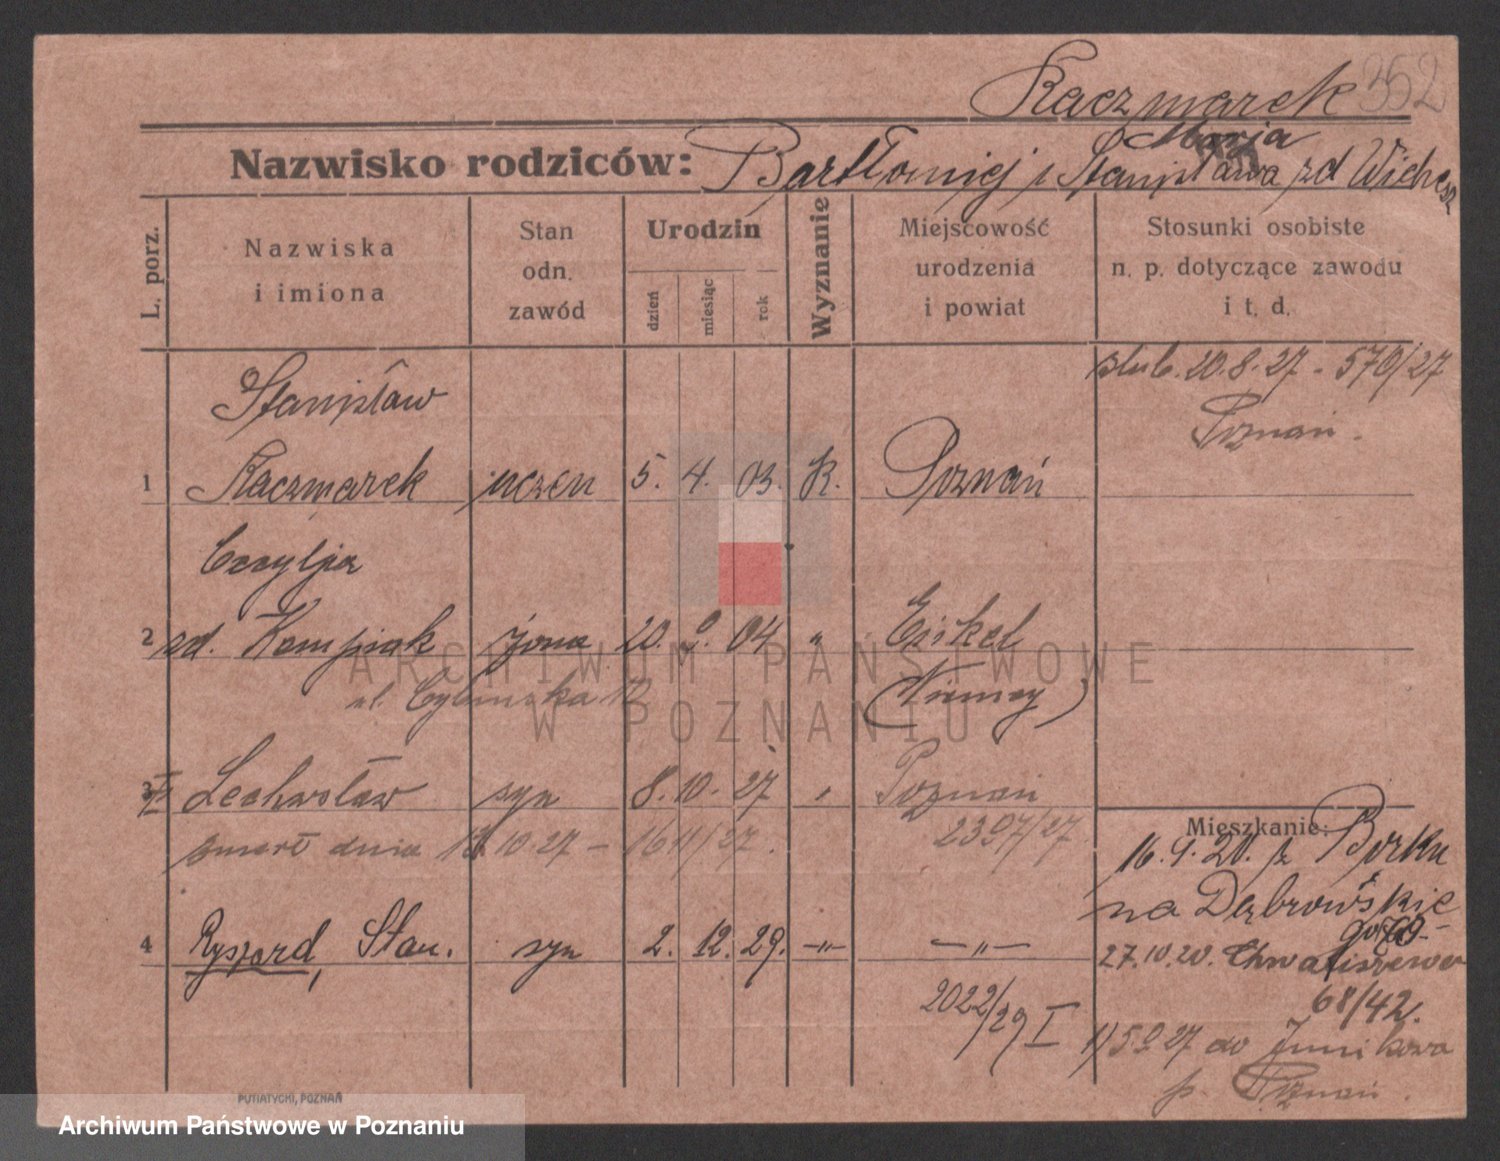 Kaczmarek 352
Marja
Nazwisko rodziców: Bartłomiej i Stanisława zd Wichesz
L. porz.
Nazwiska
i imiona
Stan
odn.
zawód
Urodzin
dzień
miesiąc
rok
Wyznanie
Miejscowość
urodzenia
i powiat
Stosunki osobiste
n. p. dotyczące zawodu
i t. d.
ślub. 20.8.27 - 570/27
Poznań.
Stanisław
1 Kaczmarek uczeń 5. 4. 03. K. Poznań
Cecylja
2 zd. Kempiak żona 20. 9. 04 " Eickel
(Niemcy)
ul. Cybinska 12
3 Lechosław syn 8. 10. 27 " Poznań
zmarł dnia 13.10.27 - 1611/27. 2307/27
4 Ryszard, Stan. syn 2. 12. 29. -"- -"-
2022/29 I
Mieszkanie:
16.9.20. z Borku
na Dąbrowskie
go 69
27.10.20. Chwaliszewo
68/42.
1) 5.9 27 do Junikowa
p. Poznań.
PUTIATYCKI, POZNAŃ
ARCHIWUM PAŃSTWOWE
W POZNANIU
Archiwum Państwowe w Poznaniu